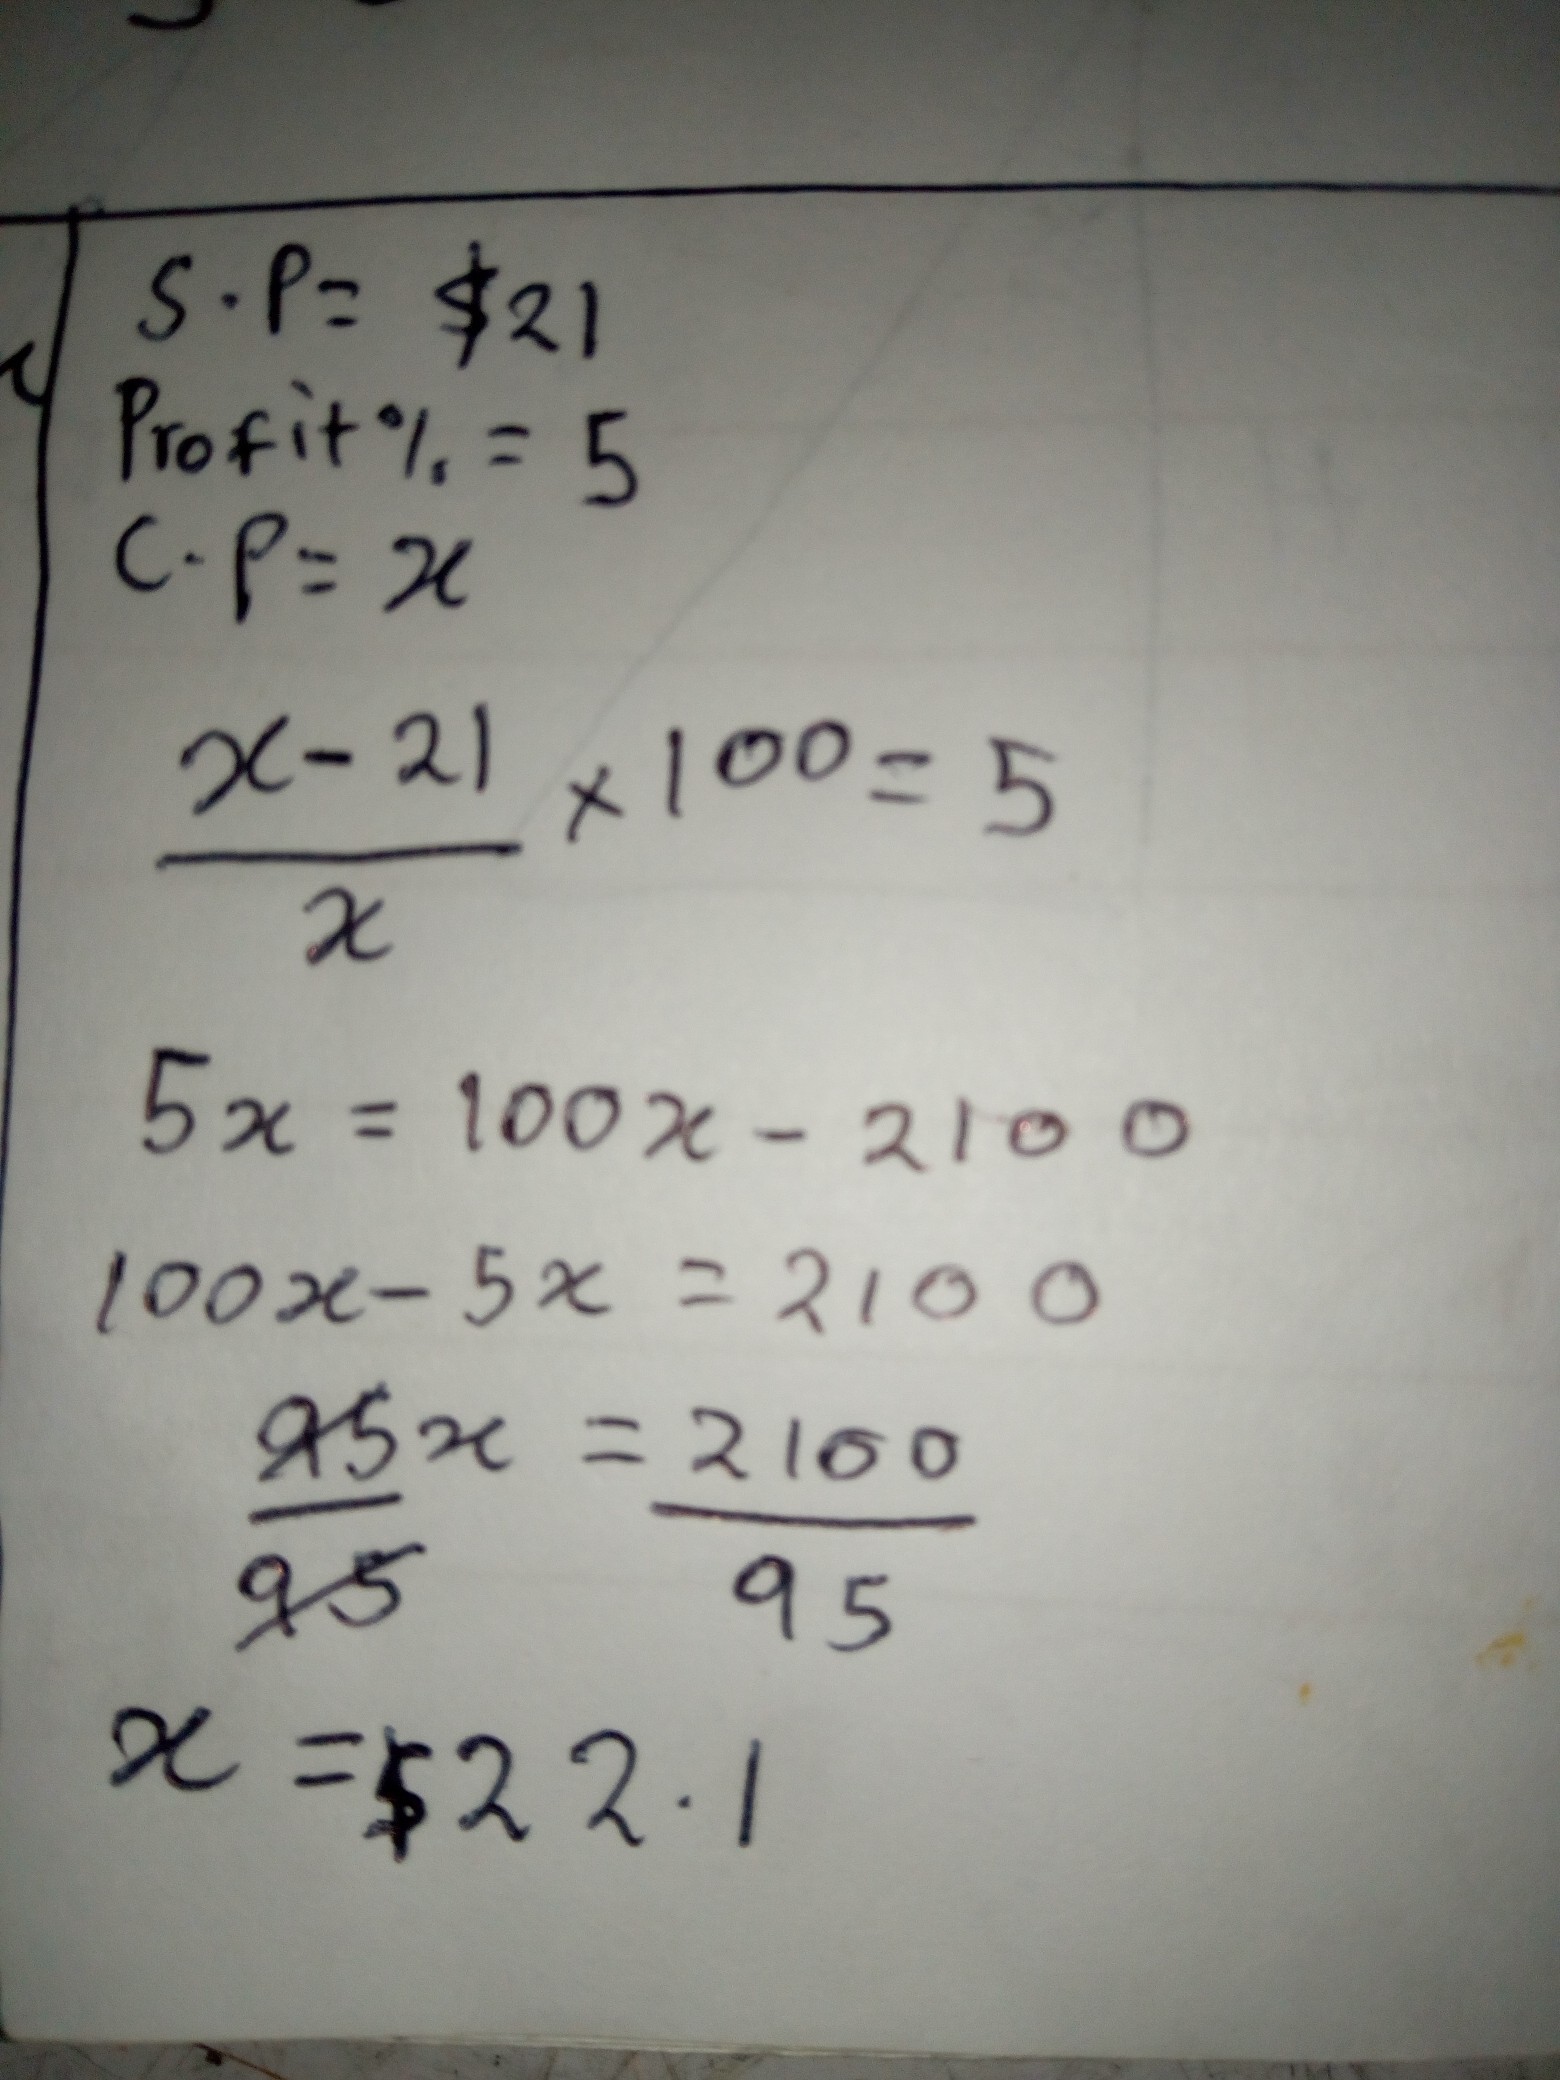 S.P= $21
Profit% = 5
C.P= x
x - 21
× 100 = 5
x
5x = 100x - 2100
100x - 5x = 2100
95x = 2100
95 95
x = $22.1